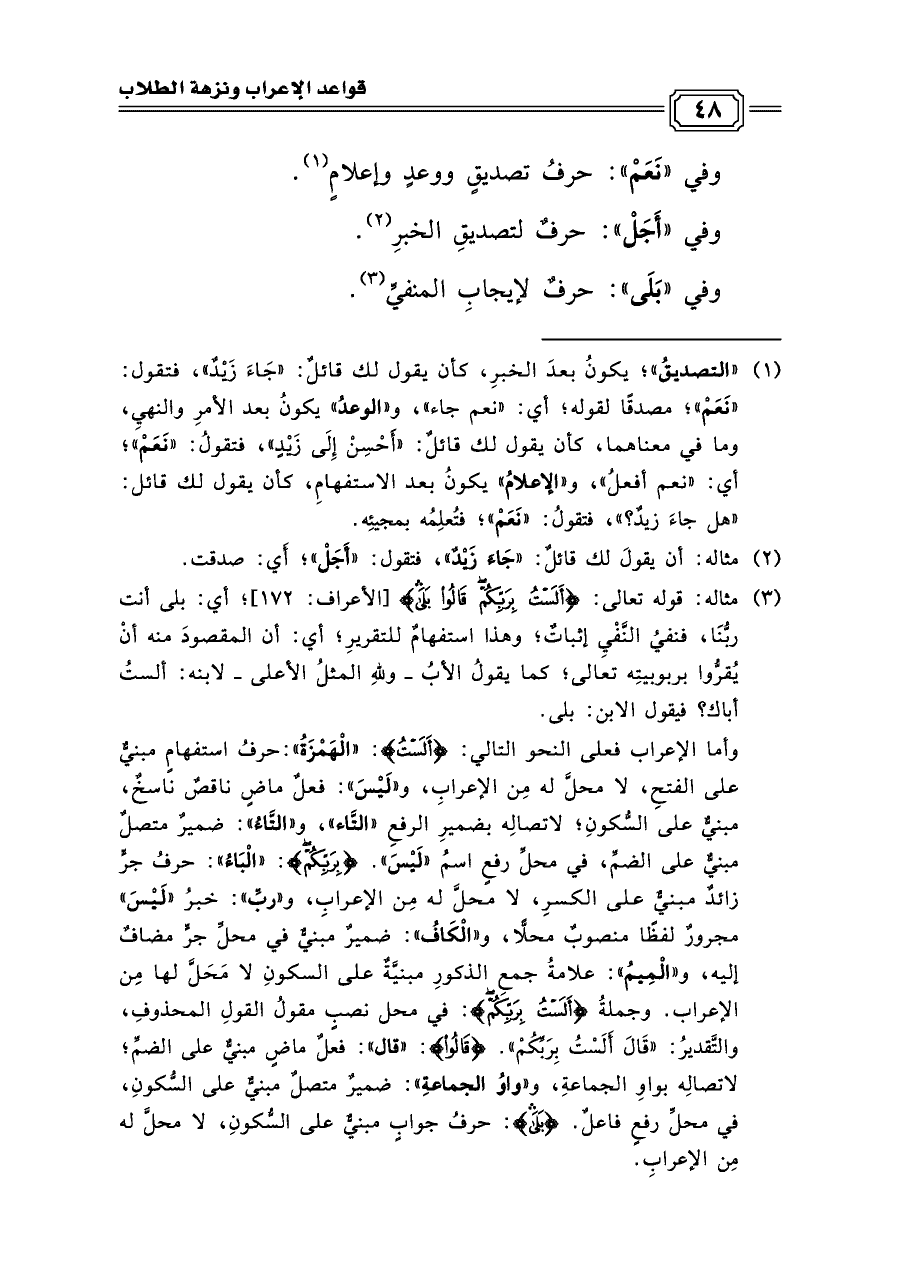 قواعد الإعراب ونزهة الطلاب
٤٨
وفي «نَعَمْ»: حرفُ تصديقٍ ووعدٍ وإعلامٍ(١).
وفي «أَجَلْ»: حرفٌ لتصديقِ الخبرِ(٢).
وفي «بَلَى»: حرفٌ لإيجابِ المنفيِّ(٣).
(١) «التصديقُ»؛ يكونُ بعدَ الخبرِ، كأن يقول لك قائلٌ: «جَاءَ زَيْدٌ»، فتقول:
«نَعَمْ»؛ مصدقًا لقوله؛ أي: «نعم جاء»، و«الوعدُ» يكونُ بعد الأمرِ والنهيِ،
وما في معناهما، كأن يقول لك قائلٌ: «أَحْسِنْ إِلَى زَيْدٍ»، فتقولُ: «نَعَمْ»؛
أي: «نعم أفعلُ»، و«الإعلامُ» يكونُ بعد الاستفهامِ، كأن يقول لك قائل:
«هل جاءَ زيدٌ؟»، فتقولُ: «نَعَمْ»؛ فتُعلِمُه بمجيئِه.
(٢) مثاله: أن يقولَ لك قائلٌ: «جَاءَ زَيْدٌ»، فتقول: «أَجَلْ»؛ أَي: صدقت.
(٣) مثاله: قوله تعالى: ﴿أَلَسْتُ بِرَبِّكُمْۖ قَالُواْ بَلَىٰۛ﴾ [الأعراف: ١٧٢]؛ أي: بلى أنت
ربُّنَا، فنفيُ النَّفْيِ إثباتٌ؛ وهذا استفهامٌ للتقريرِ؛ أي: أن المقصودَ منه أنْ
يُقرُّوا بربوبيتِه تعالى؛ كما يقولُ الأبُ ـ وللهِ المثلُ الأعلى ـ لابنه: ألستُ
أباك؟ فيقول الابن: بلى.
وأما الإعراب فعلى النحو التالي: ﴿أَلَسْتُ﴾: «الْهَمْزَةُ»:حرفُ استفهامٍ مبنيٌّ
على الفتحِ، لا محلَّ له مِن الإعرابِ، و«لَيْسَ»: فعلٌ ماضٍ ناقصٌ ناسخٌ،
مبنيٌّ على السُّكونِ؛ لاتصالِه بضميرِ الرفعِ «التَّاء»، و«التَّاءُ»: ضميرٌ متصلٌ
مبنيٌّ على الضمِّ، في محلِّ رفعٍ اسمُ «لَيْسَ». ﴿بِرَبِّكُمْۖ﴾: «الْبَاءُ»: حرفُ جرٍّ
زائدٌ مبنيٌّ على الكسرِ، لا محلَّ له مِن الإعرابِ، و«ربِّ»: خبرُ «لَيْسَ»
مجرورٌ لفظًا منصوبٌ محلًّا، و«الْكَافُ»: ضميرٌ مبنيٌّ في محلِّ جرٍّ مضافٌ
إليه، و«الْمِيمُ»: علامةُ جمعِ الذكورِ مبنيَّةٌ على السكونِ لا مَحَلَّ لها مِن
الإعرابِ. وجملةُ ﴿أَلَسْتُ بِرَبِّكُمْۖ﴾: في محل نصبٍ مقولُ القولِ المحذوفِ،
والتَّقديرُ: «قَالَ أَلَسْتُ بِرَبِّكُمْ». ﴿قَالُواْ﴾: «قال»: فعلٌ ماضٍ مبنيٌّ على الضمِّ؛
لاتصالِه بواوِ الجماعةِ، و«واوُ الجماعةِ»: ضميرٌ متصلٌ مبنيٌّ على السُّكونِ،
في محلِّ رفعٍ فاعلٌ. ﴿بَلَىٰۛ﴾: حرفُ جوابٍ مبنيٌّ على السُّكونِ، لا محلَّ له
مِن الإعرابِ.